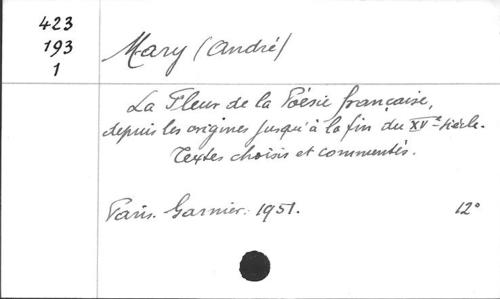 423
193
1
Mary (André)
La Fleur de la Poésie française,
depuis les origines jusqu'à la fin du XVe siècle.
Textes choisis et commentés.
Paris. Garnier. 1951. 12°